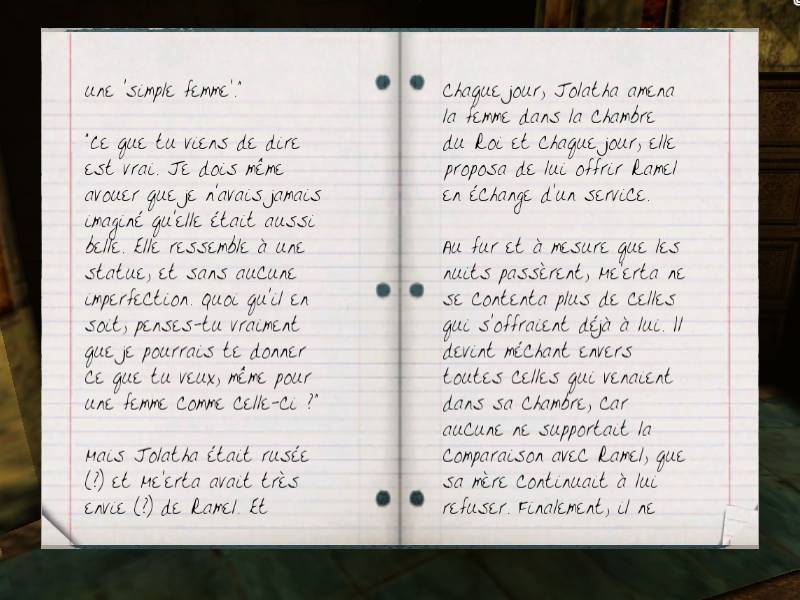 une 'simple femme'."
"Ce que tu viens de dire
est vrai. Je dois même
avouer que je n'avais jamais
imaginé qu'elle était aussi
belle. Elle ressemble à une
statue, et sans aucune
imperfection. Quoi qu'il en
soit, penses-tu vraiment
que je pourrais te donner
ce que tu veux, même pour
une femme comme celle-ci ?"
Mais Jolatha était rusée
(?) et Me'erta avait très
envie (?) de Ramel. Et
Chaque jour, Jolatha amena
la femme dans la chambre
du Roi et chaque jour, elle
proposa de lui offrir Ramel
en échange d'un service.
Au fur et à mesure que les
nuits passèrent, Me'erta ne
se contenta plus de celles
qui s'offraient déjà à lui. Il
devint méchant envers
toutes celles qui venaient
dans sa chambre, car
aucune ne supportait la
comparaison avec Ramel, que
sa mère continuait à lui
refuser. Finalement, il ne